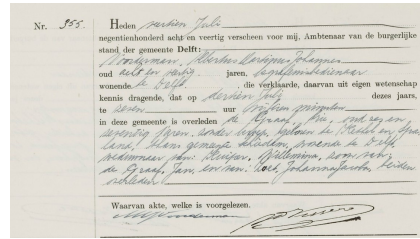 Nr. 955.
Heden veertien Juli
negentienhonderd acht en veertig verscheen voor mij, Ambtenaar van de burgerlijke
stand der gemeente Delft:
Noorderman, Albertus Martinus Johannes
oud acht en dertig jaren, begrafenisbedienaar
wonende te Delft, die verklaarde, daarvan uit eigen wetenschap
kennis dragende, dat op dertien Juli dezes jaars,
te zeven uur vijftien minuten
in deze gemeente is overleden de Graaf, Arie, oud zes en
zeventig jaren, zonder beroep, geboren te Ketel en
land, thans gemeente Schiedam, wonende te Delft,
weduwnaar van: Kluijver, Willemina, zoon van:
de Graaf, Jan, en van: Johanna Jacoba, beiden
overleden.
Waarvan akte, welke is voorgelezen.